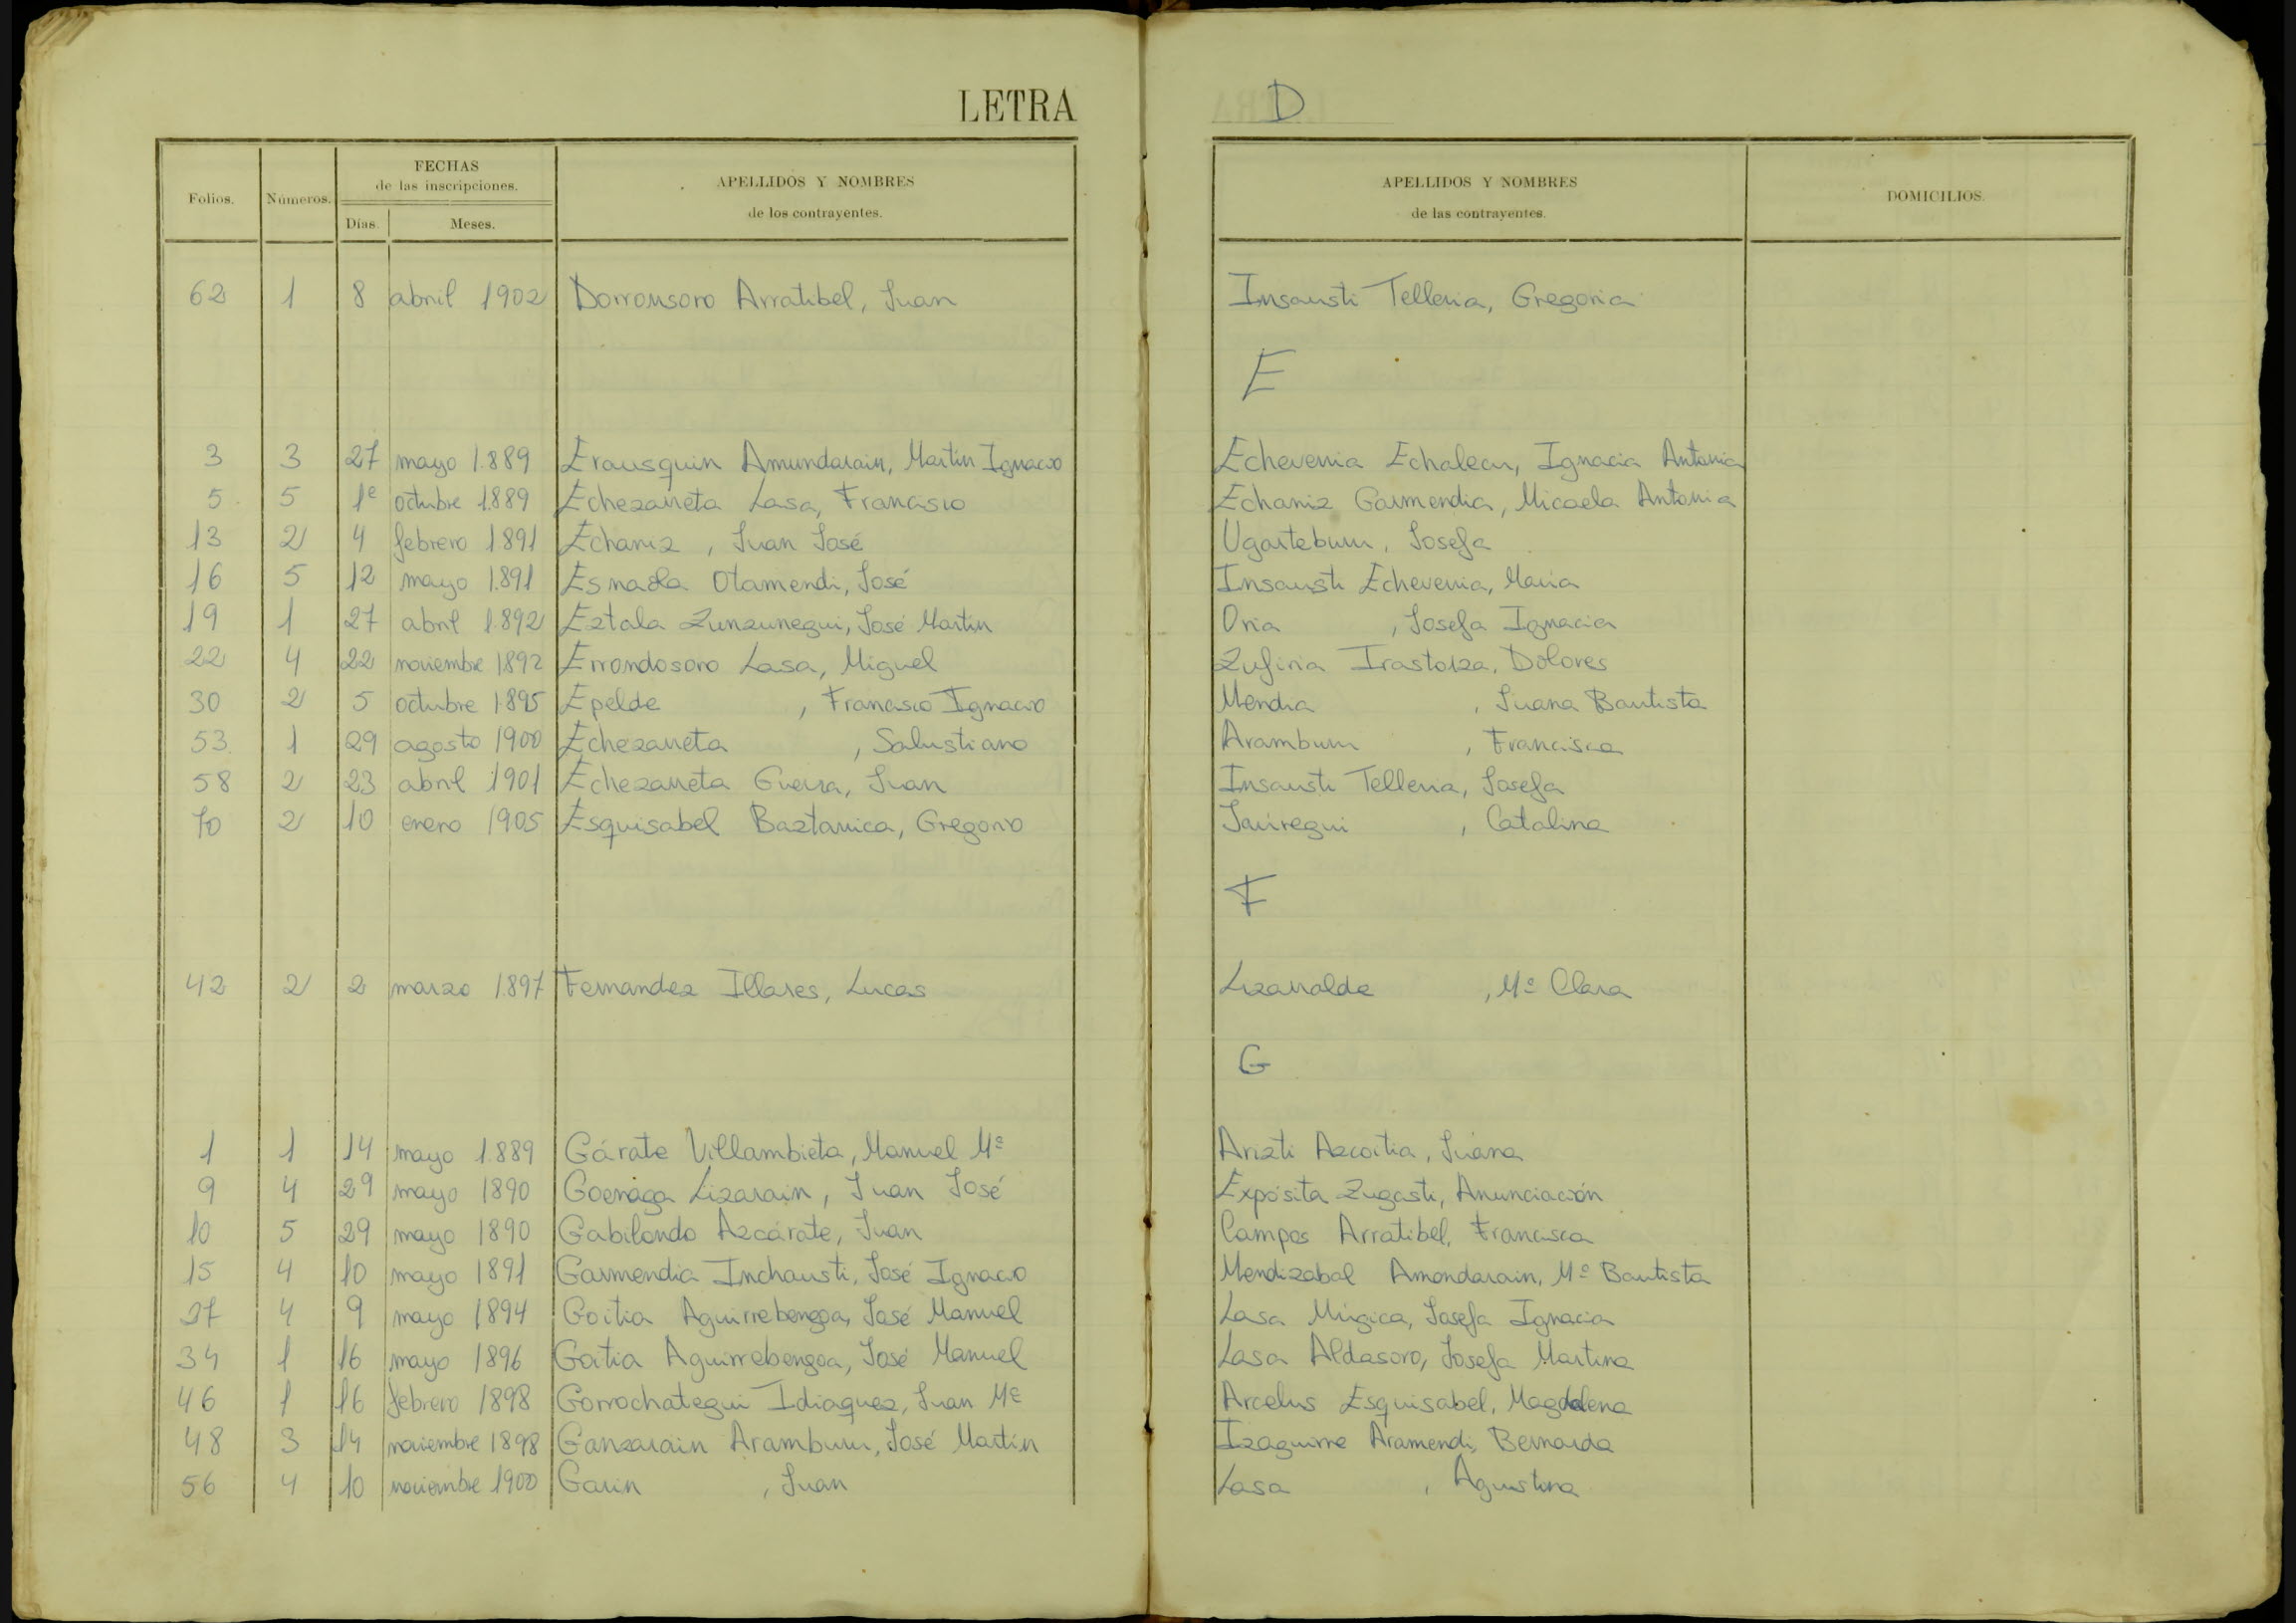 LETRA D
Folios. Números. FECHAS de las inscripciones. Días. Meses. APELLIDOS Y NOMBRES de los contrayentes. APELLIDOS Y NOMBRES de las contrayentes. DOMICILIOS.
62 1 8 abril 1902 Dorronsoro Arratibel, Juan Insausti Telleria, Gregoria
E
3 3 27 mayo 1.889 Erausquin Amundarain, Martin Ignacio Echeverria Echalecu, Ignacia Antonia
5 5 1º octubre 1.889 Echezarreta Lasa, Francisco Echaniz Garmendia, Micaela Antonia
13 2 4 febrero 1891 Echaniz , Juan José Ugarteburu, Josefa
16 5 12 mayo 1.891 Esnaola Otamendi, José Insausti Echeverria, Maria
19 1 27 abril 1.892 Eztala Zunzunegui, José Martin Oria , Josefa Ignacia
22 4 22 noviembre 1892 Errondosoro Lasa, Miguel Zufiria Irastorza, Dolores
30 2 5 octubre 1.895 Epelde , Francisco Ignacio Mendia , Juana Bautista
53 1 29 agosto 1900 Echezarreta , Salustiano Aramburu , Francisca
58 2 23 abril 1901 Echezarreta Guerra, Juan Insausti Telleria, Josefa
70 2 10 enero 1905 Esquisabel Baztarrica, Gregorio Jauregui , Catalina
F
42 2 2 marzo 1.897 Fernandez Illares, Lucas Lizarralde , Mª Clara
G
1 1 14 mayo 1.889 Gárate Villambieta, Manuel Mª Arizti Azcoitia, Juana
9 4 29 mayo 1890 Goenaga Lizarain, Juan José Expósita Zugasti, Anunciación
10 5 29 mayo 1890 Gabilondo Azcárate, Juan Campos Arratibel, Francisca
15 4 10 mayo 1891 Garmendia Inchausti, José Ignacio Mendizabal Amondarain, Mª Bautista
27 4 9 mayo 1894 Goitia Aguirrebengoa, José Manuel Lasa Múgica, Josefa Ignacia
34 1 16 mayo 1896 Goitia Aguirrebengoa, José Manuel Lasa Aldasoro, Josefa Martina
46 1 16 febrero 1898 Gorrochategui Idiaquez, Juan Mª Arcelus Esquisabel, Magdalena
48 3 14 noviembre 1898 Ganzarain Aramburu, José Martin Izaguirre Aramendi, Bernarda
56 4 10 noviembre 1900 Garin , Juan Lasa , Agustina